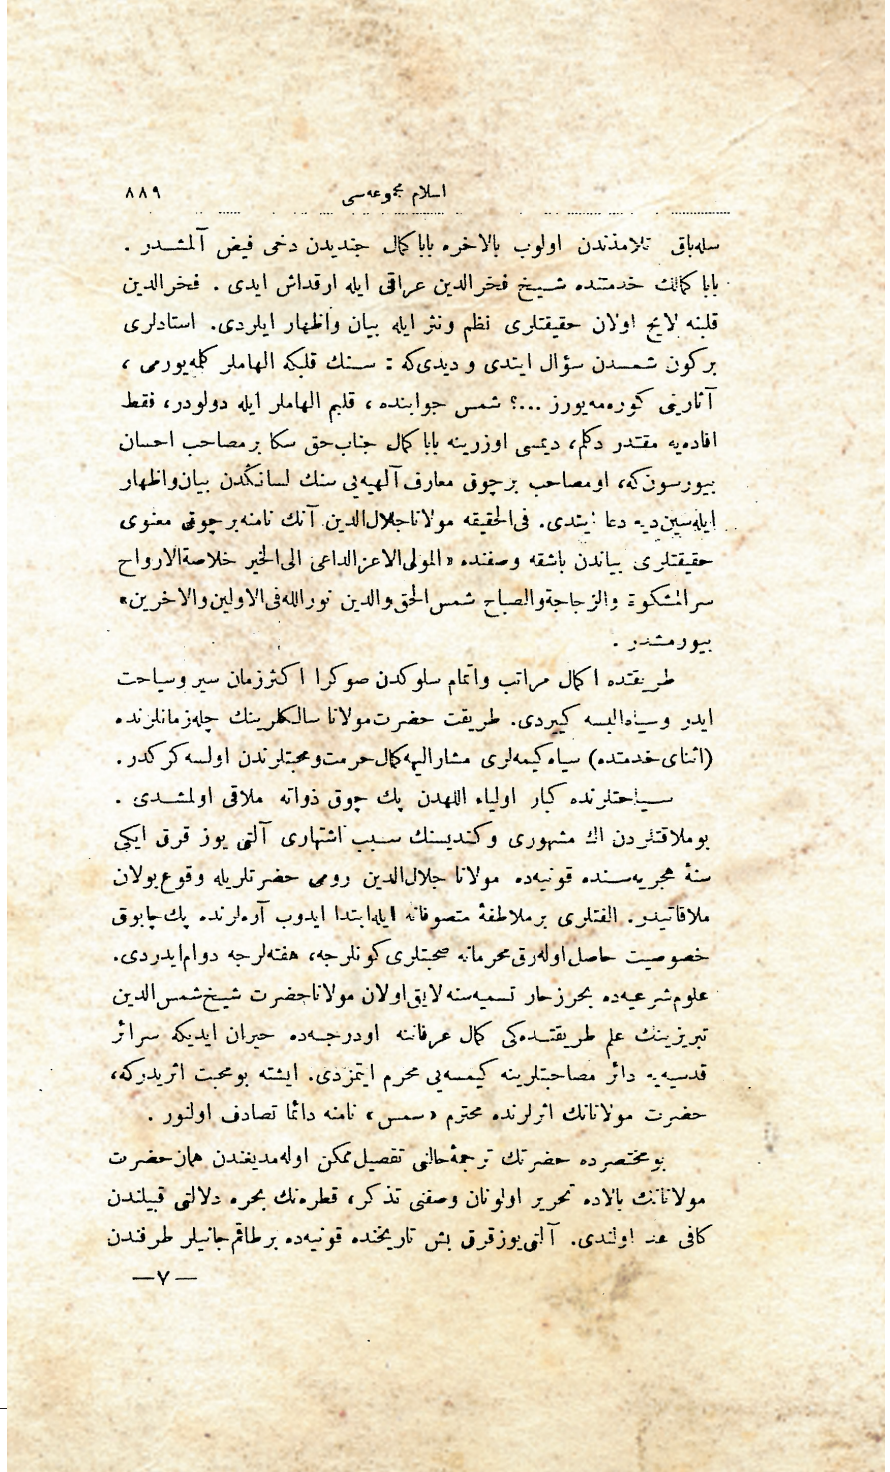 اسلام مجموعه‌سی ٨٨٩
سله‌باقی تلامذندن اولوب بالاخره بابا كمال جنديدن دخی فيض آلمشـدر .
بابا كمالك خدمتنده شـيـخ فخرالدين عراقی ايله ارقداش ايدی . فخرالدين
قلبنه لايح اولان حقيقتلری نظم ونثر ايله بيان واظهار ايلردی. استادلری
بركون شمسدن سؤال ايتدی و ديدی‌كه : سـنك قلبكه الهاملر كلمه‌يورمی ،
آثارينی كوره‌مه‌يورز ...؟ شمس جوابنده ، قلبم الهاملر ايله دولودر، فقط
افاده‌يه مقتدر دكلم، ديمسی اوزرينه بابا كمال جناب‌حق سكا برمصاحب احسان
بيورسون‌كه، اومصاحب برچوق معارف آلهيه‌یی سنك لسانكدن بيان‌واظهار
ايله‌سين‌ديه دعا ايتدی. فی‌الحقيقه مولاناجلال‌الدين آنك نامنه‌برچوق معنوی
حقيقتلری بياندن باشقه وصفنده «المولی‌الاعزالداعی الی‌الخير خلاصةالارواح
سرالمشكوة والزجاجةوالصباح شمس‌الحق‌والدين نورالله‌فی‌الاولين‌والاخرين»
بيورمشدر .
طريقتده اكمال مراتب واتمام سلوكدن صوكرا اكثرزمان سير وسياحت
ايدر وسياه‌البسه كييردی. طريقت حضرت‌مولانا سالكلرينك چله‌زمانلرنده
(اثنای‌خدمتده) سياه‌كيمه‌لری مشاراليهه‌كمال‌حرمت‌ومحبتلرندن اولسه‌كركدر.
سـياحتلرنده كبار اولياء اللهدن پك چوق ذواته ملاقی اولمشـدی .
بوملاقتلردن اك مشهوری وكنديسنك سـبب اشتهاری آلتی يوز قرق ايكی
سنهٔ هجريه‌سـنده قونيه‌ده مولانا جلال‌الدين رومی حضرتلريله وقوع‌بولان
ملاقاتيدر. الفتلری برملاطفهٔ متصوفانه ايله‌ابتدا ايدوب آره‌لرنده پك‌چابوق
خصوصيت حاصل‌اوله‌رق‌محرمانه صحبتلری‌كونلرجه، هفته‌لرجه دوام‌ايدردی.
علوم‌شرعيه‌ده بحرزخار تسميه‌سنه لايق‌اولان مولاناحضرت شيخ‌شمس‌الدين
تبريزينك علم طريقتـده‌كی كمال عرفاننه اودرجـه‌ده حيران ايديكه سرائر
قدسيه‌يه دائر مصاحبتلرينه كيمسه‌یی محرم ايتمزدی. ايشته بومحبت اثريدركه،
حضرت مولانانك اثرلرنده محترم «سمس» نامنه دائما تصادف اولنور .
بومختصرده حضرتك ترجمهٔ‌حالنی تفصيل‌ممكن اوله‌مديغندن همان‌حضرت
مولانانك بالاده تحرير اولونان وصفنی تذكر، قطره‌نك بحره دلالتی قبيلندن
كافی عد اولندی. آلتی‌يوزقرق بش تاريخنده قونيه‌ده برطاقم‌جانيلر طرفندن
—٧—